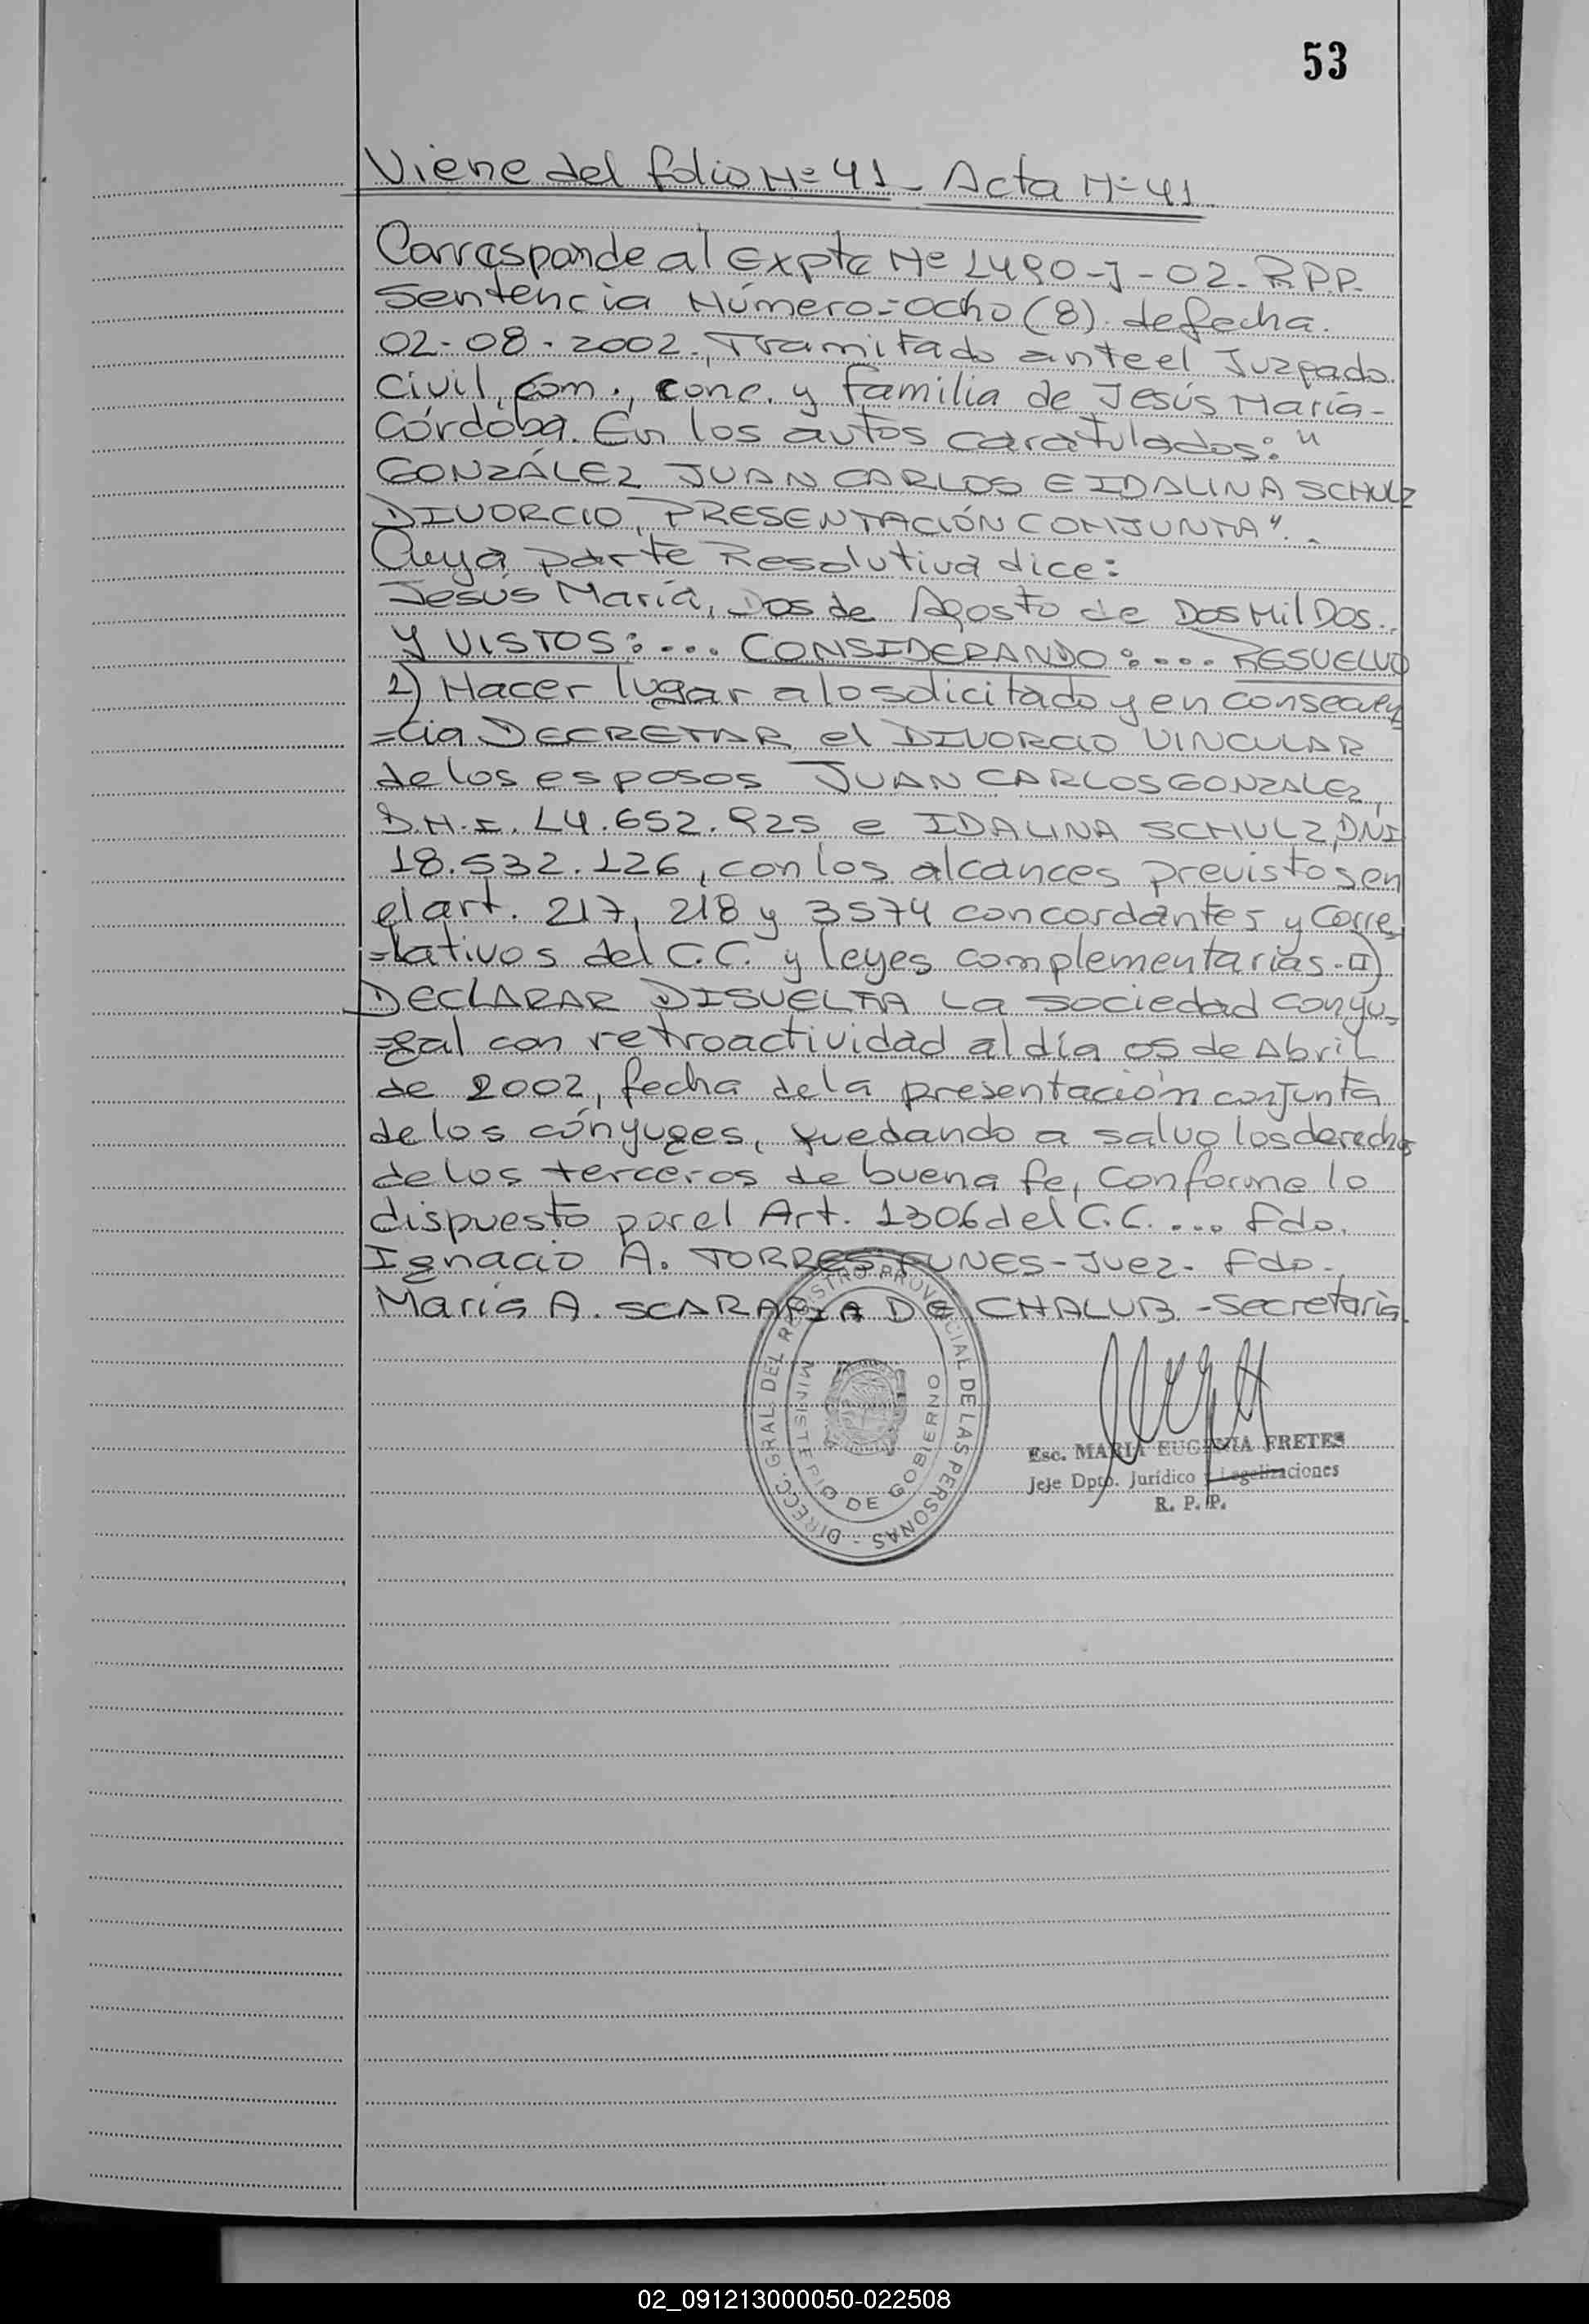 53
Viene del folio Nº 41 - Acta Nº 41.
Corresponde al Expte Nº 1490-J-02. R.P.P.
Sentencia Número=Ocho (8). de fecha.
02-08-2002., Tramitado ante el Juzgado.
Civil, Com., Conc. y Familia de Jesús María-
Córdoba. En los autos caratulados: "
GONZÁLEZ JUAN CARLOS E IDALINA SCHULZ
DIVORCIO, PRESENTACIÓN CONJUNTA". -
Cuya parte Resolutiva dice:
Jesús María, Dos de Agosto de Dos Mil Dos..
Y VISTOS:.... CONSIDERANDO:.... RESUELVO
1) Hacer lugar a lo solicitado y en consecuen
=cia DECRETAR el DIVORCIO VINCULAR
de los esposos JUAN CARLOS GONZALEZ,
D.N.I. 14.652.925 e IDALINA SCHULZ, DNI
18.532.126, con los alcances previstos en
el art. 217, 218 y 3574 concordantes y Corre_
=lativos del C.C. y leyes complementarias. II)
DECLARAR DISUELTA La sociedad conyu_
=gal con retroactividad al día 05 de Abril
de 2002, fecha de la presentación conjunta
de los cónyuges, quedando a salvo los derechos
de los terceros de buena fe, Conforme lo
dispuesto por el Art. 1306 del C.C. ... Fdo.
Ignacio A. TORRES FUNES-Juez. Fdo.,
María A. SCARAFIA DE CHALUB.-Secretaria.
DIRECC. GRAL. DEL REGISTRO PROVINCIAL DE LAS PERSONAS -
MINISTERIO DE GOBIERNO
Esc. MARIA EUGENIA FRETES
Jefe Dpto. Jurídico y Legalizaciones
R. P. P.
02_091213000050-022508